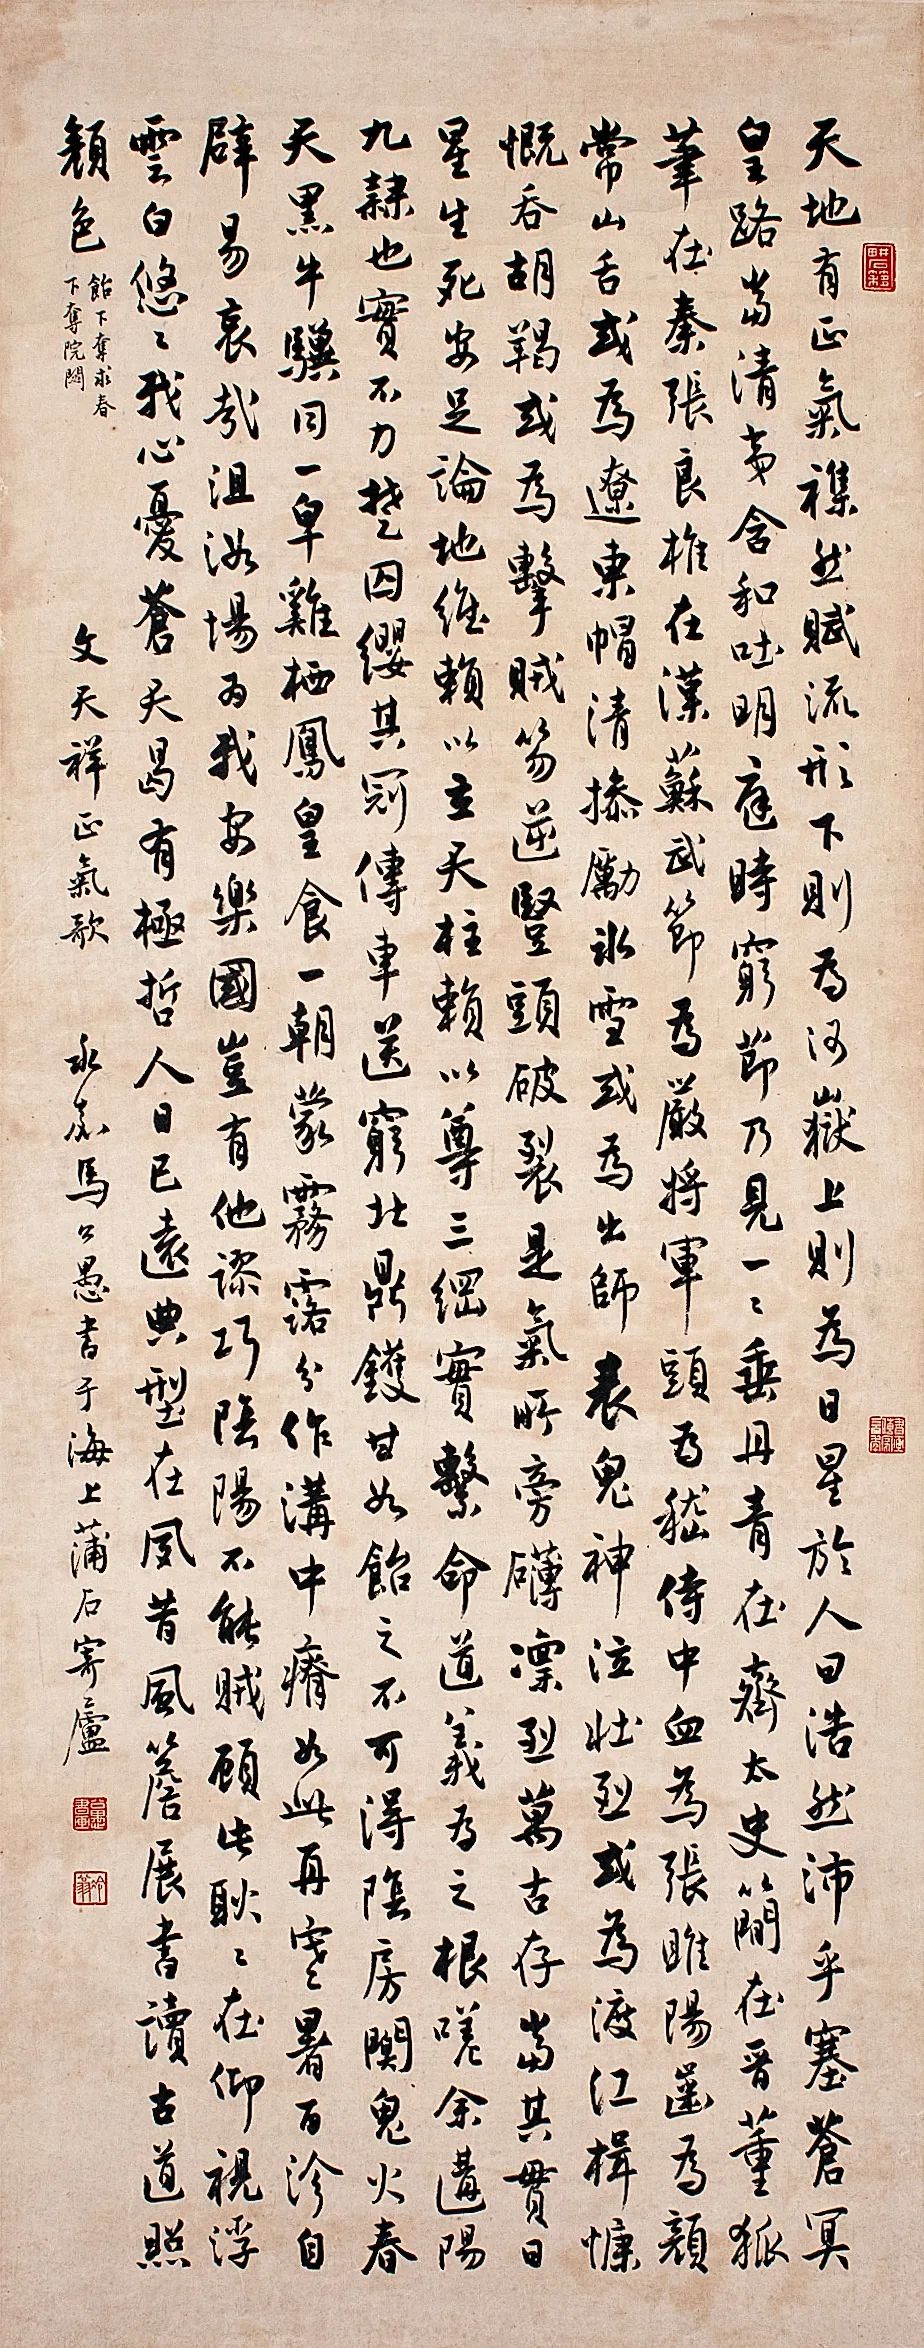 天地有正氣襍然賦流形下則為河嶽上則為日星於人曰浩然沛乎塞蒼冥
皇路當清夷含和吐明庭時窮節乃見一ミ垂丹青在齊太史簡在晋董狐
筆在秦張良椎在漢蘇武節為嚴將軍頭為嵇侍中血為張睢陽齒為顏
常山舌或為遼東帽清操勵冰雪或為出師表鬼神泣壮烈或為渡江楫慷
慨吞胡羯或為擊賊笏逆豎頭破裂是氣所旁礴凜烈萬古存當其貫日
星生死安足論地維賴以立天柱賴以尊三綱實繫命道義為之根嗟余遘陽
九隸也實不力楚囚纓其冠傳車送窮北鼎鑊甘如飴之不可得陰房闃鬼火春
天黑牛驥同一皁雞栖鳳皇食一朝蒙霧露分作溝中瘠如此再寒暑百沴自
辟易哀哉沮洳場為我安樂國豈有他謬巧陰陽不能賊顧此耿ミ在仰視浮
雲白悠ミ我心憂蒼天曷有極哲人日已遠典型在夙昔風簷展書讀古道照
顏色
飴下奪求春
下奪院閟
文天祥正氣歌
永嘉馬公愚書于海上蒲石寄廬